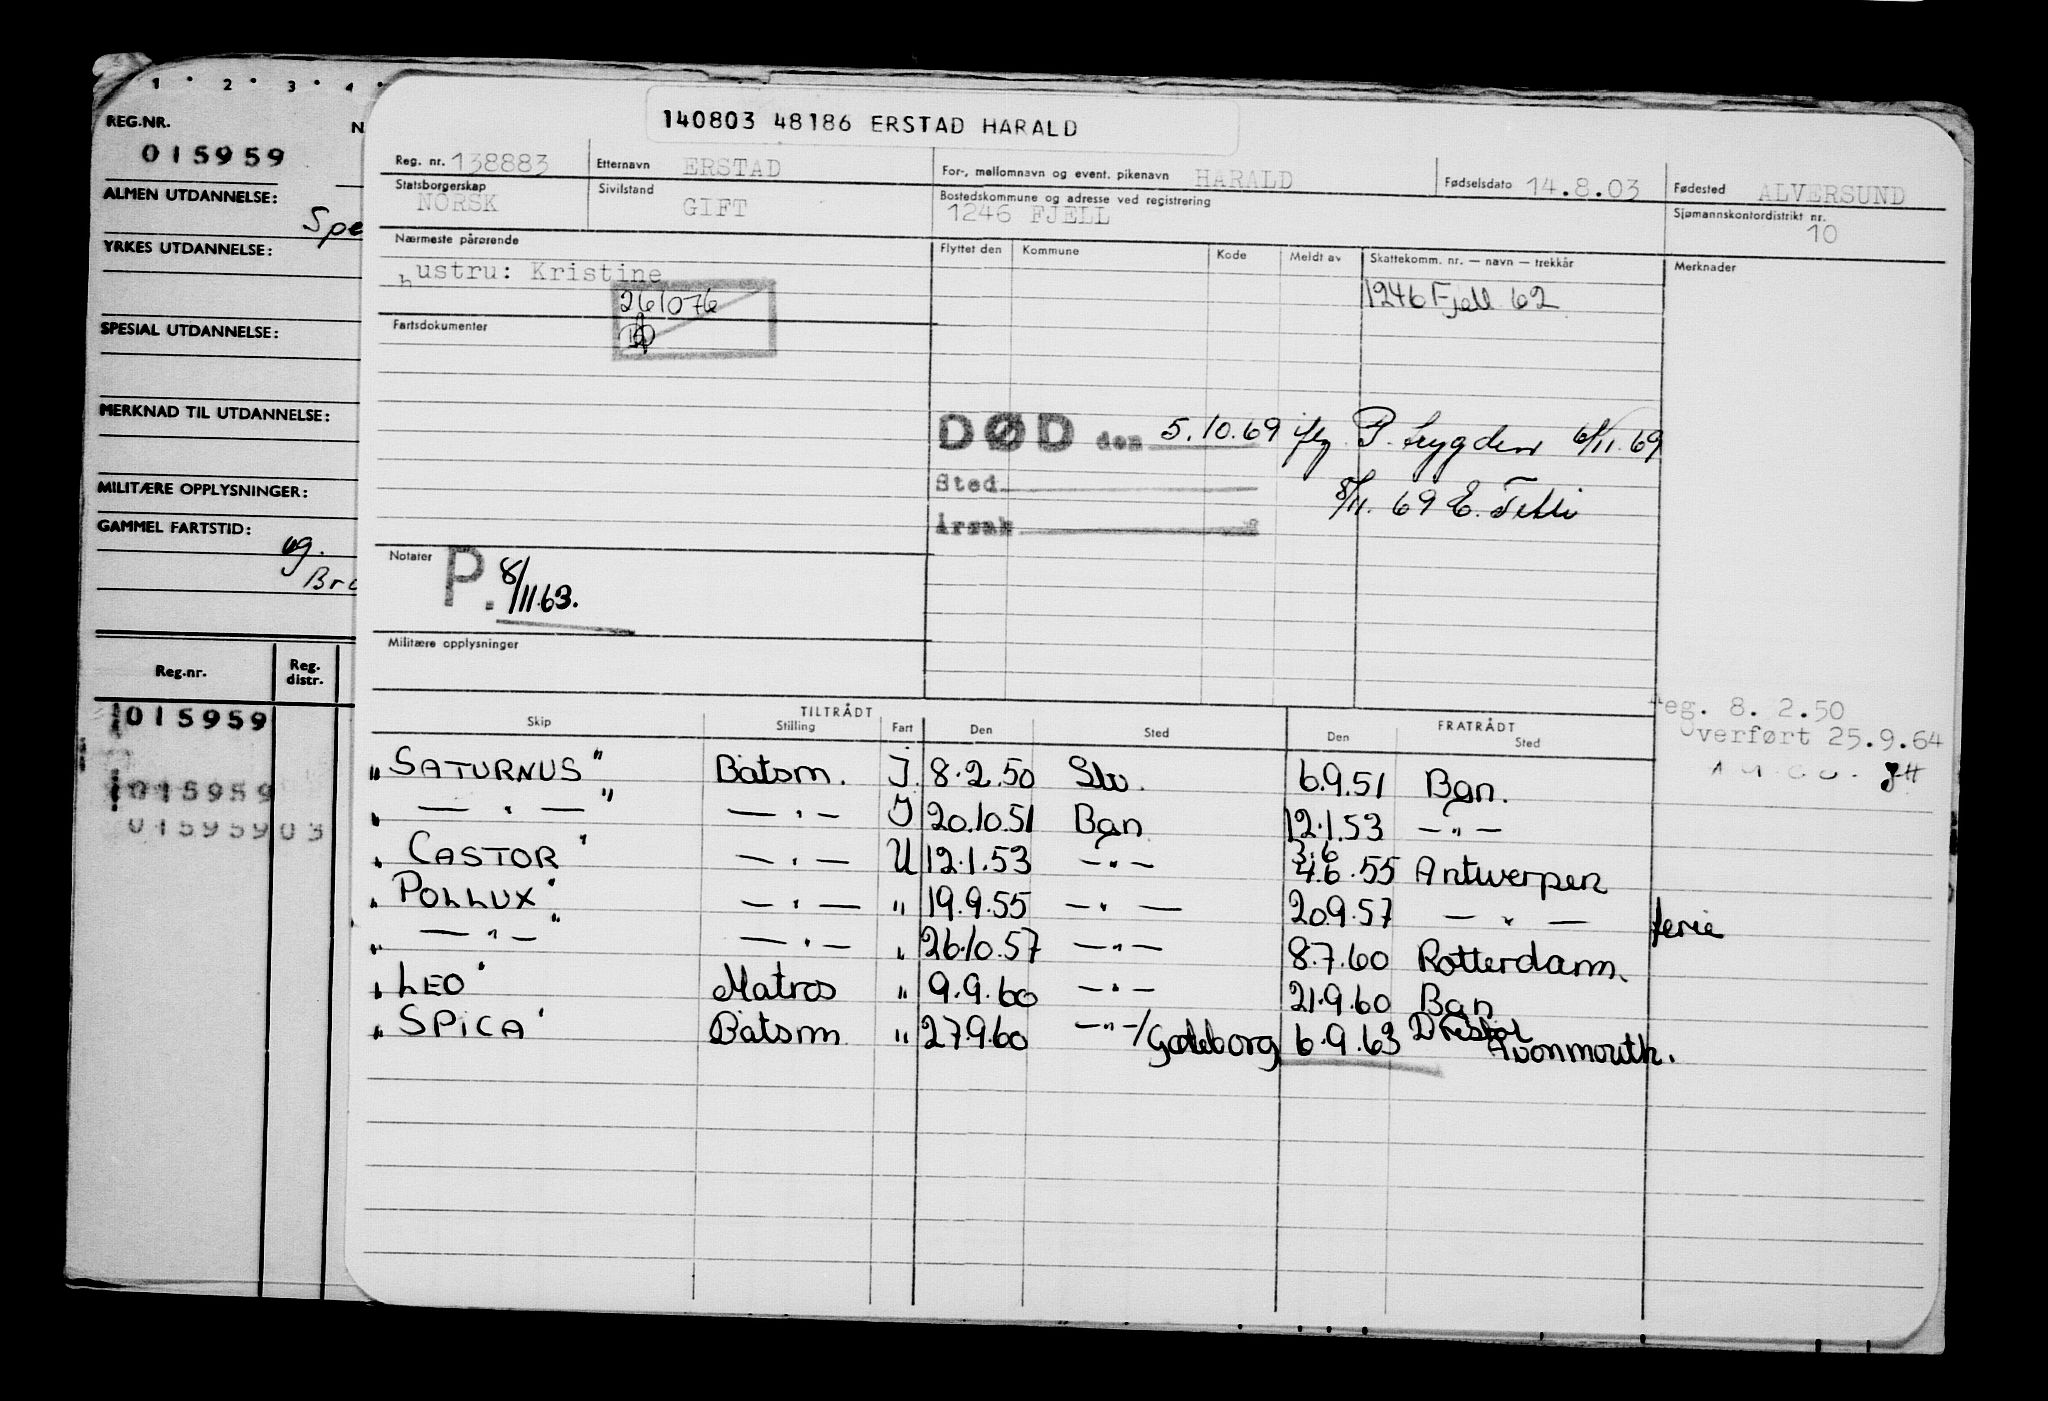 1 2 3 4
REG.NR.
015959
ALMEN UTDANNELSE:
Spe
YRKES UTDANNELSE:
SPESIAL UTDANNELSE:
MERKNAD TIL UTDANNELSE:
MILITÆRE OPPLYSNINGER:
GAMMEL FARTSTID:
ug.
Reg.nr. Reg. distr.
015959
015959
01595903
140803 48186 ERSTAD HARALD
Reg. nr. 138883 Etternavn ERSTAD For-, mellomnavn og event. pikenavn HARALD Fødselsdato 14.8.03 Fødested ALVERSUND
Statsborgerskap NORSK Sivilstand GIFT Bostedskommune og adresse ved registrering 1246 FJELL Sjømannskontordistrikt nr. 10
Nærmeste pårørende Flyttet den Kommune Kode Meldt av Skattekomm. nr. — navn — trekkår Merknader
hustru: Kristine
261076
1246 Fjell 62
Fartsdokumenter
DØD den 5.10.69 6/11.69
Sted
8/11.69 E.
Årsak
Notater P. 8/11.63.
Militære opplysninger
reg. 8. 2.50
Overført 25.9.64
TILTRÅDT FRATRÅDT
Skip Stilling Fart Den Sted Den Sted
"SATURNUS" Båtsm. I. 8.2.50 6.9.51 Bgn.
" — " — " — " — I 20.10.51 Bgn 12.1.53 — " —
"CASTOR" — " — U 12.1.53 — " — 3.6 4.6.55 Antwerpen
"POLLUX" — " — " 19.9.55 — " — 20.9.57 — " — ferie
" — " — " — " — " 26.10.57 — " — 8.7.60 Rotterdam.
"LEO" Matros " 9.9.60 — " — 21.9.60 Bgn
"SPICA" Båtsm " 27.9.60 — " —/Gøteborg 6.9.63 Avonmouth.